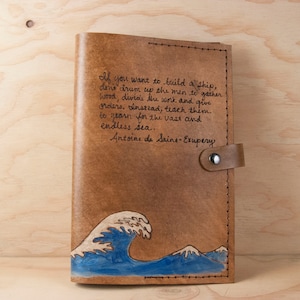 If you want to build a ship,
don't drum up the men to gather
wood, divide the work and give
orders. Instead, teach them
to yearn for the vast and
endless sea...
Antoine de Saint-Exupery